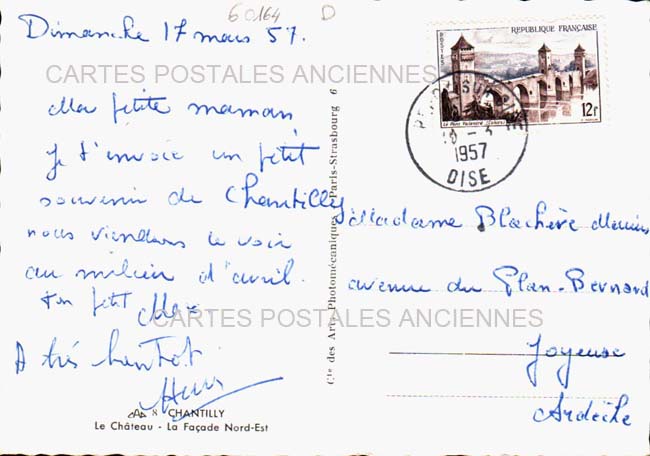 60164 D
Dimanche 17 mars 57.
CARTES POSTALES ANCIENNES
Ma petite maman
je t'envoie un petit
souvenir de Chantilly
nous viendrons le voir
au milieu d'avril.
ton petit Max
CARTES POSTALES ANCIENNES
A très bientôt
8 CHANTILLY
Le Château - La Façade Nord-Est
Cie des Arts Photomécaniques Paris-Strasbourg 6
POSTES
REPUBLIQUE FRANÇAISE
Le Pont Valentré (Cahors)
12F
1957
OISE
Madame Blachère
avenue du Plan-Bernard
Joyeuse
Ardèche